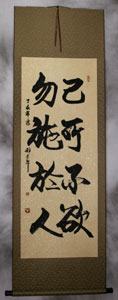 己所不欲
勿施於人